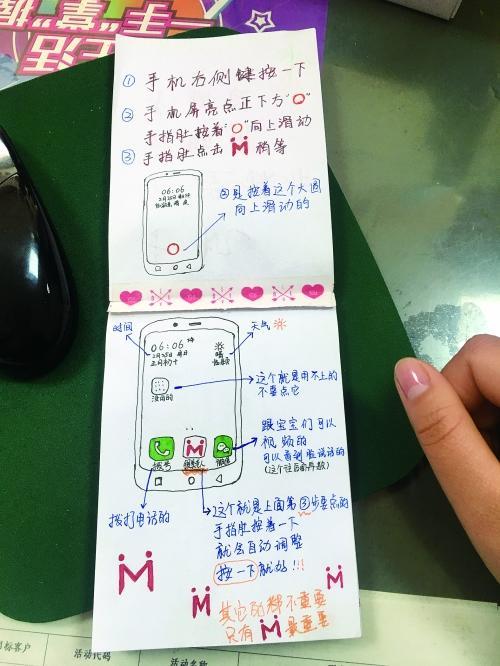 生活
二手"掌"握
① 手机右侧键按一下
② 手机屏亮点正下方"O"
手指肚按着"O"向上滑动
③ 手指肚点击 稍等
06:06
②是按着这个大圆
向上滑动的
时间
天气
06:06
晴
正月初十
没用的
这个就是用不上的
不要点它
跟宝宝们可以
视频的
可以看到脸说话的
(这个往后再教)
拨号
微信
拨打电话的
这个就是上面第③步要点的
手指肚按着一下
就会自动调整
按一下就好!!!
其它的都不重要
只有 最重要
目标客户
活动代码
活动名称